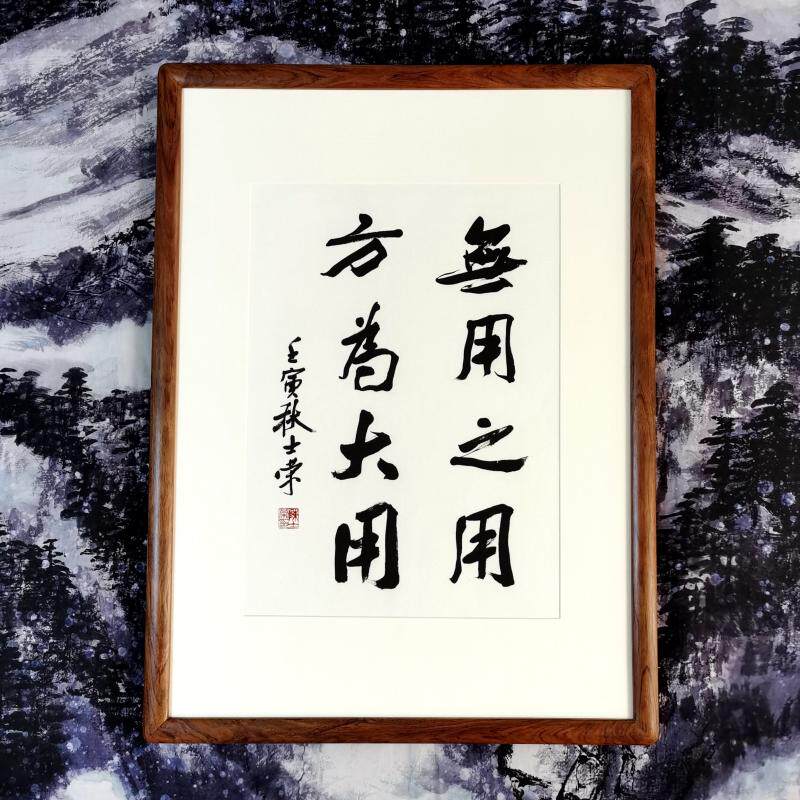 無用之用
方為大用
壬寅秋士榮